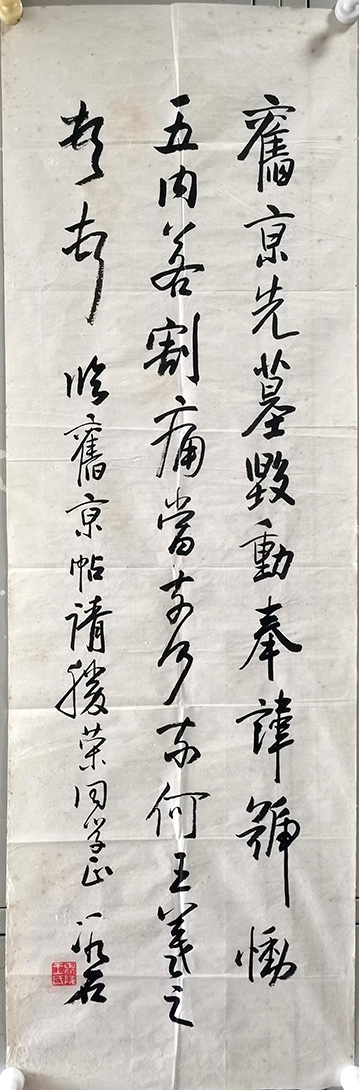 舊京先墓毀動奉諱號慟
五内若割痛當奈何奈何王羲之
頓首 臨舊京帖請勝榮同學正